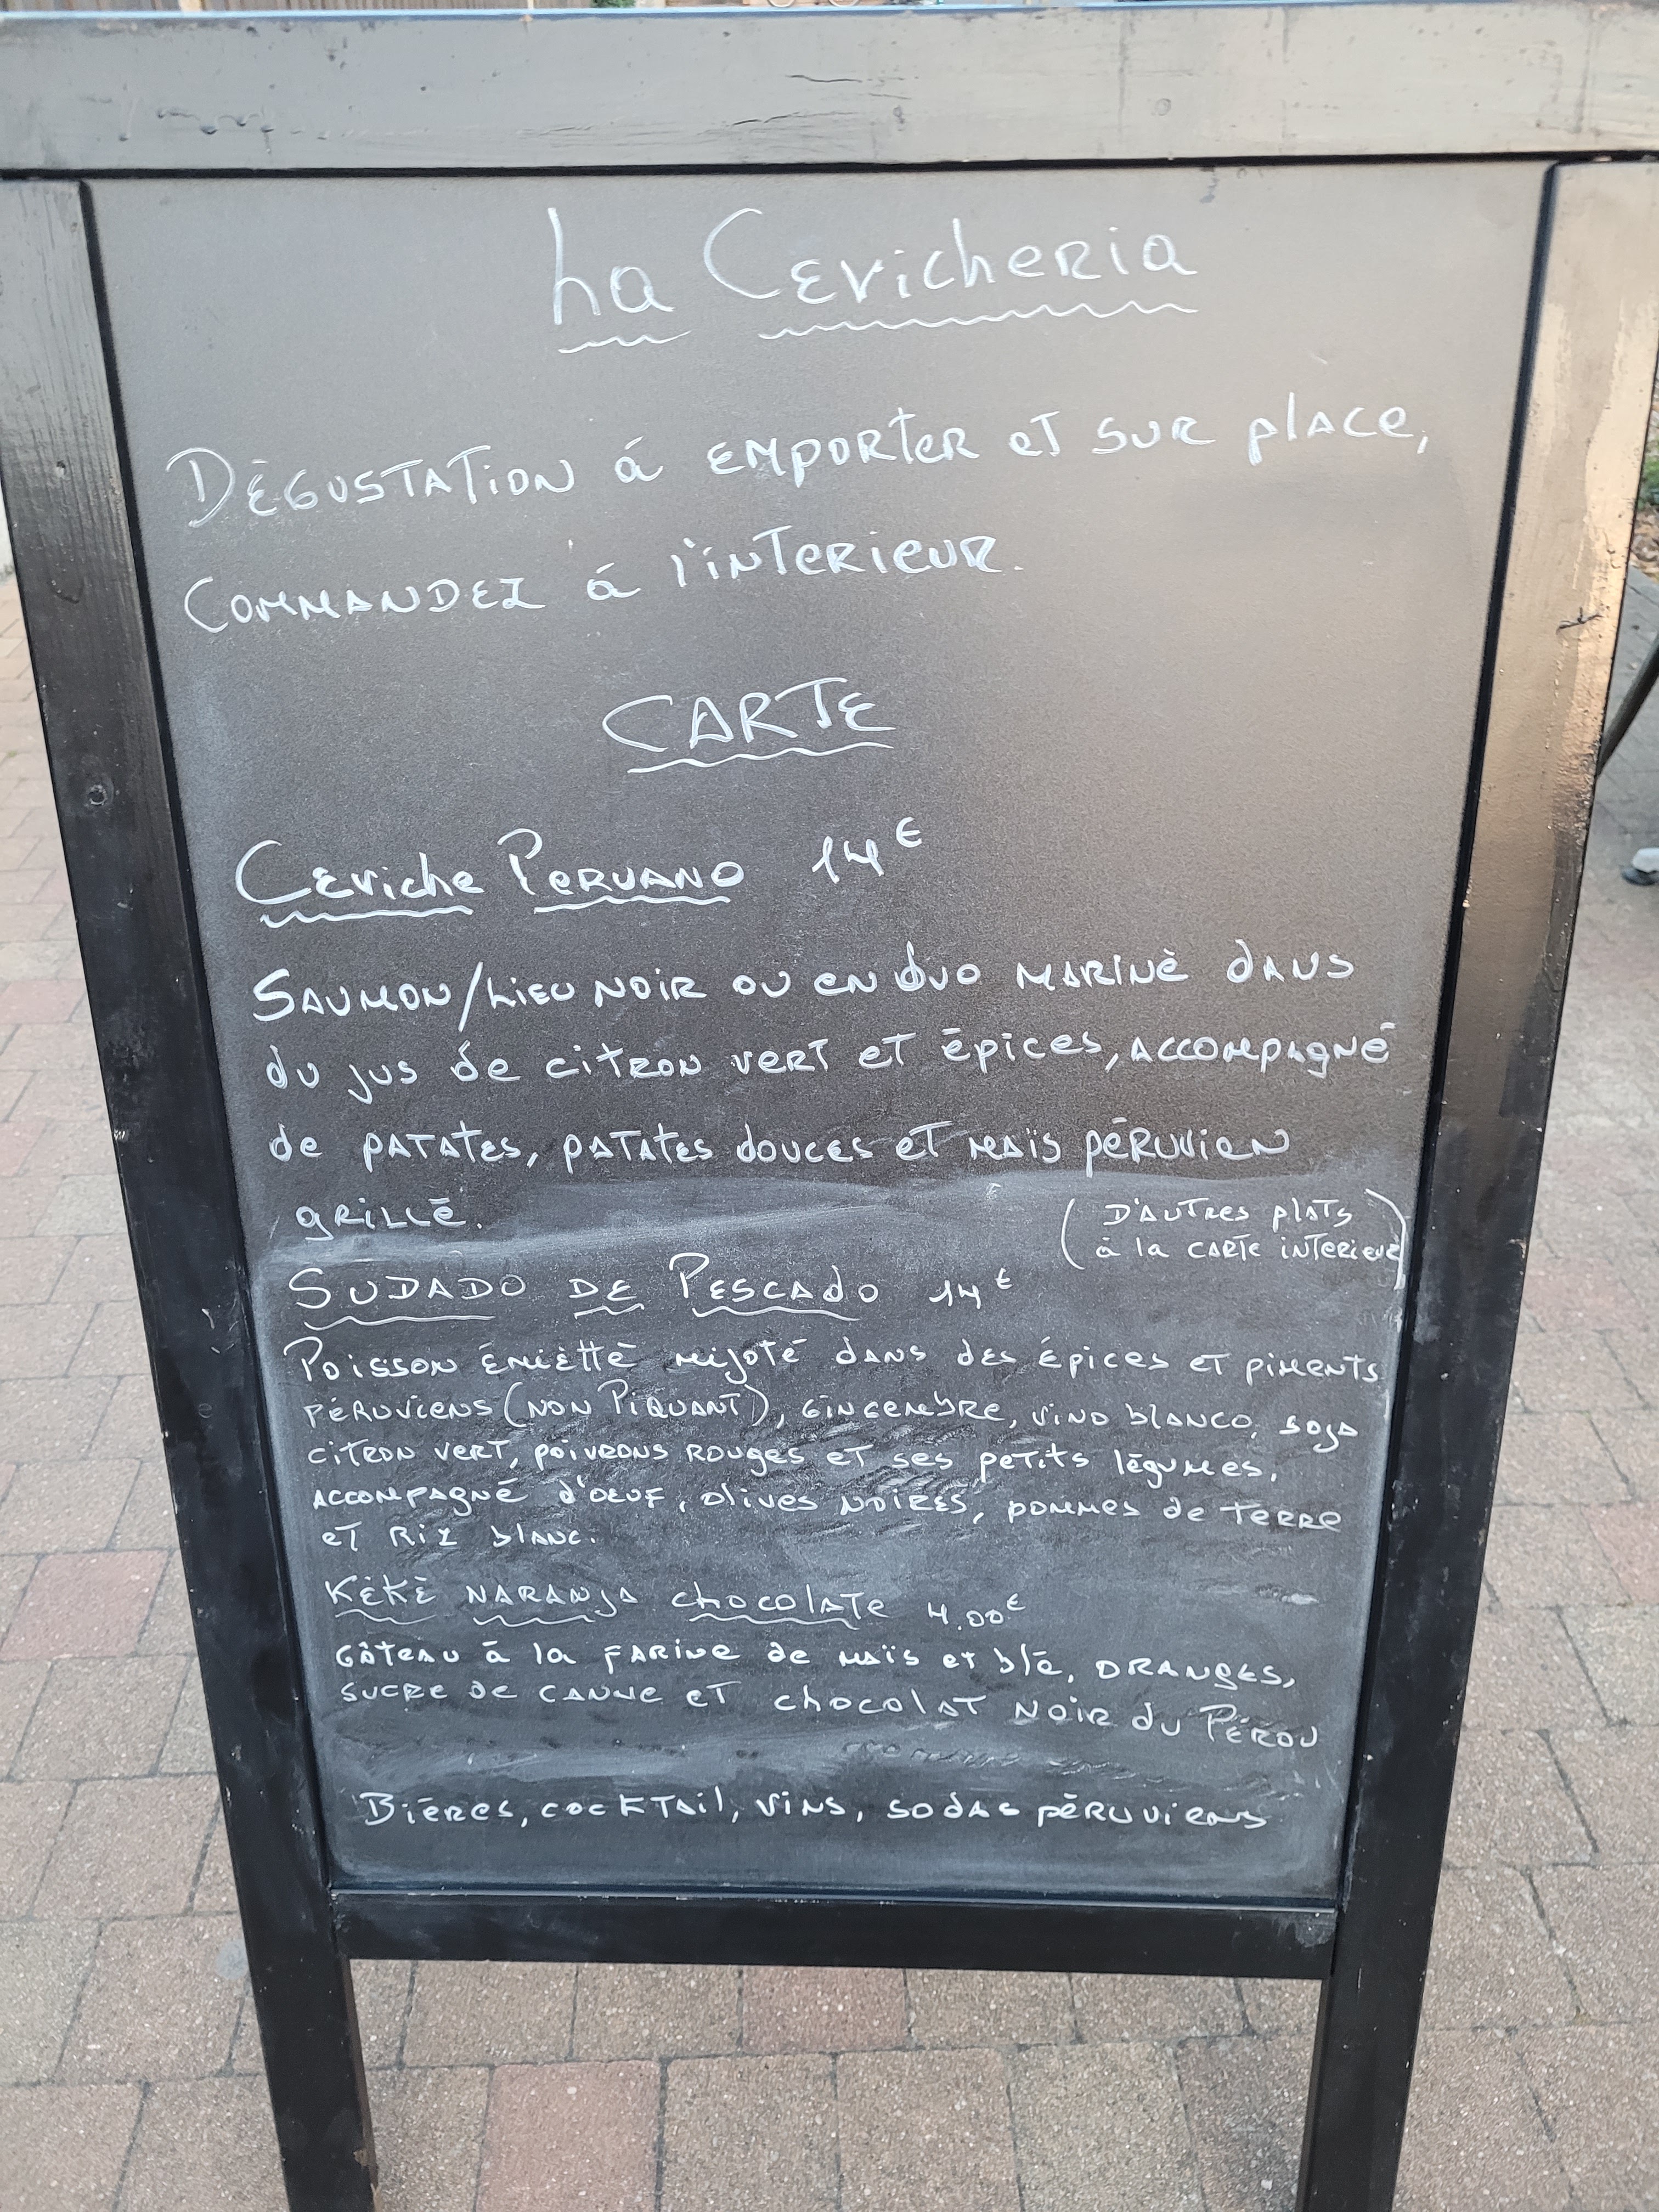 La Cevicheria
Dégustation á emporter et sur place,
Commandez á l'interieur.
CARTE
Ceviche Peruano 14€
Saumon/Lieu noir ou en duo mariné dans
du jus de citron vert et épices, accompagné
de patates, patates douces et maïs péruvien
grillé.
(D'autres plats
à la carte interieur)
Sudado de Pescado 14€
Poisson émiétté mijoté dans des épices et piments
péruviens (non piquant), gingembre, vino blanco, soja
citron vert, poivrons rouges et ses petits légumes,
accompagné d'oeuf, olives noires, pommes de terre
et riz blanc.
Kèkè naranja chocolate 4,00€
Gâteau à la farine de maïs et blé, oranges,
sucre de canne et chocolat noir du Pérou
Bières, cocktail, vins, sodas péruviens